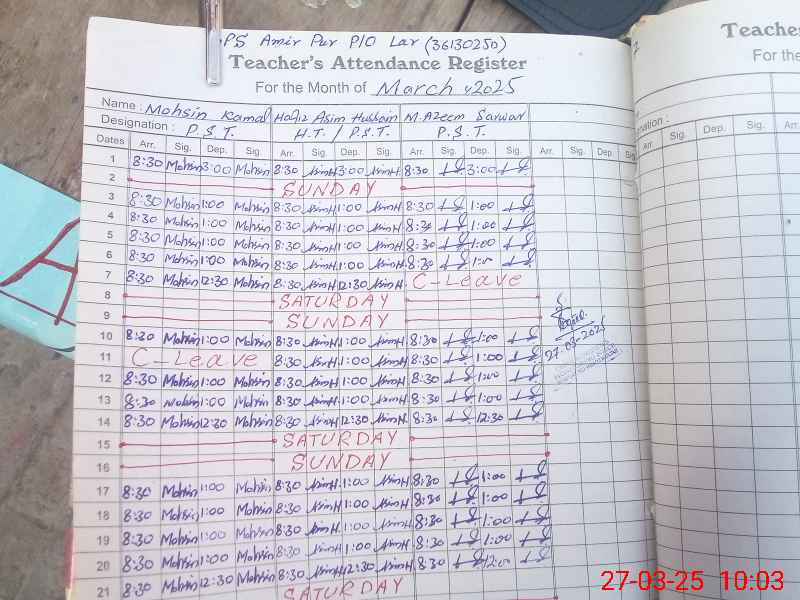 PS Amir Pur P/O Lar (36130250)
Teacher's Attendance Register
For the Month of March, 2025
Name: Mohsin Kamal Hafiz Asim Hussain M. Azeem Sarwar
Designation: P.S.T. H.T. / P.S.T. P.S.T.
Dates Arr. Sig. Dep. Sig. Arr. Sig. Dep. Sig. Arr. Sig. Dep. Sig. Arr. Sig. Dep. Sig.
1 8:30 Mohsin 3:00 Mohsin 8:30 AsimH 3:00 AsimH 8:30 3:00
2 SUNDAY
3 8:30 Mohsin 1:00 Mohsin 8:30 AsimH 1:00 AsimH 8:30 1:00
4 8:30 Mohsin 1:00 Mohsin 8:30 AsimH 1:00 AsimH 8:30 1:00
5 8:30 Mohsin 1:00 Mohsin 8:30 AsimH 1:00 AsimH 8:30 1:00
6 8:30 Mohsin 1:00 Mohsin 8:30 AsimH 1:00 AsimH 8:30
7 8:30 Mohsin 12:30 Mohsin 8:30 AsimH 12:30 AsimH C-Leave
8 SATURDAY
9 SUNDAY
10 8:30 Mohsin 1:00 Mohsin 8:30 AsimH 1:00 AsimH 8:30 1:00
11 C-Leave 8:30 AsimH 1:00 AsimH 8:30 1:00
12 8:30 Mohsin 1:00 Mohsin 8:30 AsimH 1:00 AsimH 8:30 1:00
13 8:30 Mohsin 1:00 Mohsin 8:30 AsimH 1:00 AsimH 8:30 1:00
14 8:30 Mohsin 12:30 Mohsin 8:30 AsimH 12:30 AsimH 8:30 12:30
15 SATURDAY
16 SUNDAY
17 8:30 Mohsin 1:00 Mohsin 8:30 AsimH 1:00 AsimH 8:30 1:00
18 8:30 Mohsin 1:00 Mohsin 8:30 AsimH 1:00 AsimH 8:30 1:00
19 8:30 Mohsin 1:00 Mohsin 8:30 AsimH 1:00 AsimH 8:30 1:00
20 8:30 Mohsin 1:00 Mohsin 8:30 AsimH 1:00 AsimH 8:30 1:00
21 8:30 Mohsin 12:30 Mohsin 8:30 AsimH 12:30 AsimH 8:30
SATURDAY
27-03-2025
Teache
For the
nation:
Sig. Dep. Sig. Arr.
27-03-25 10:03